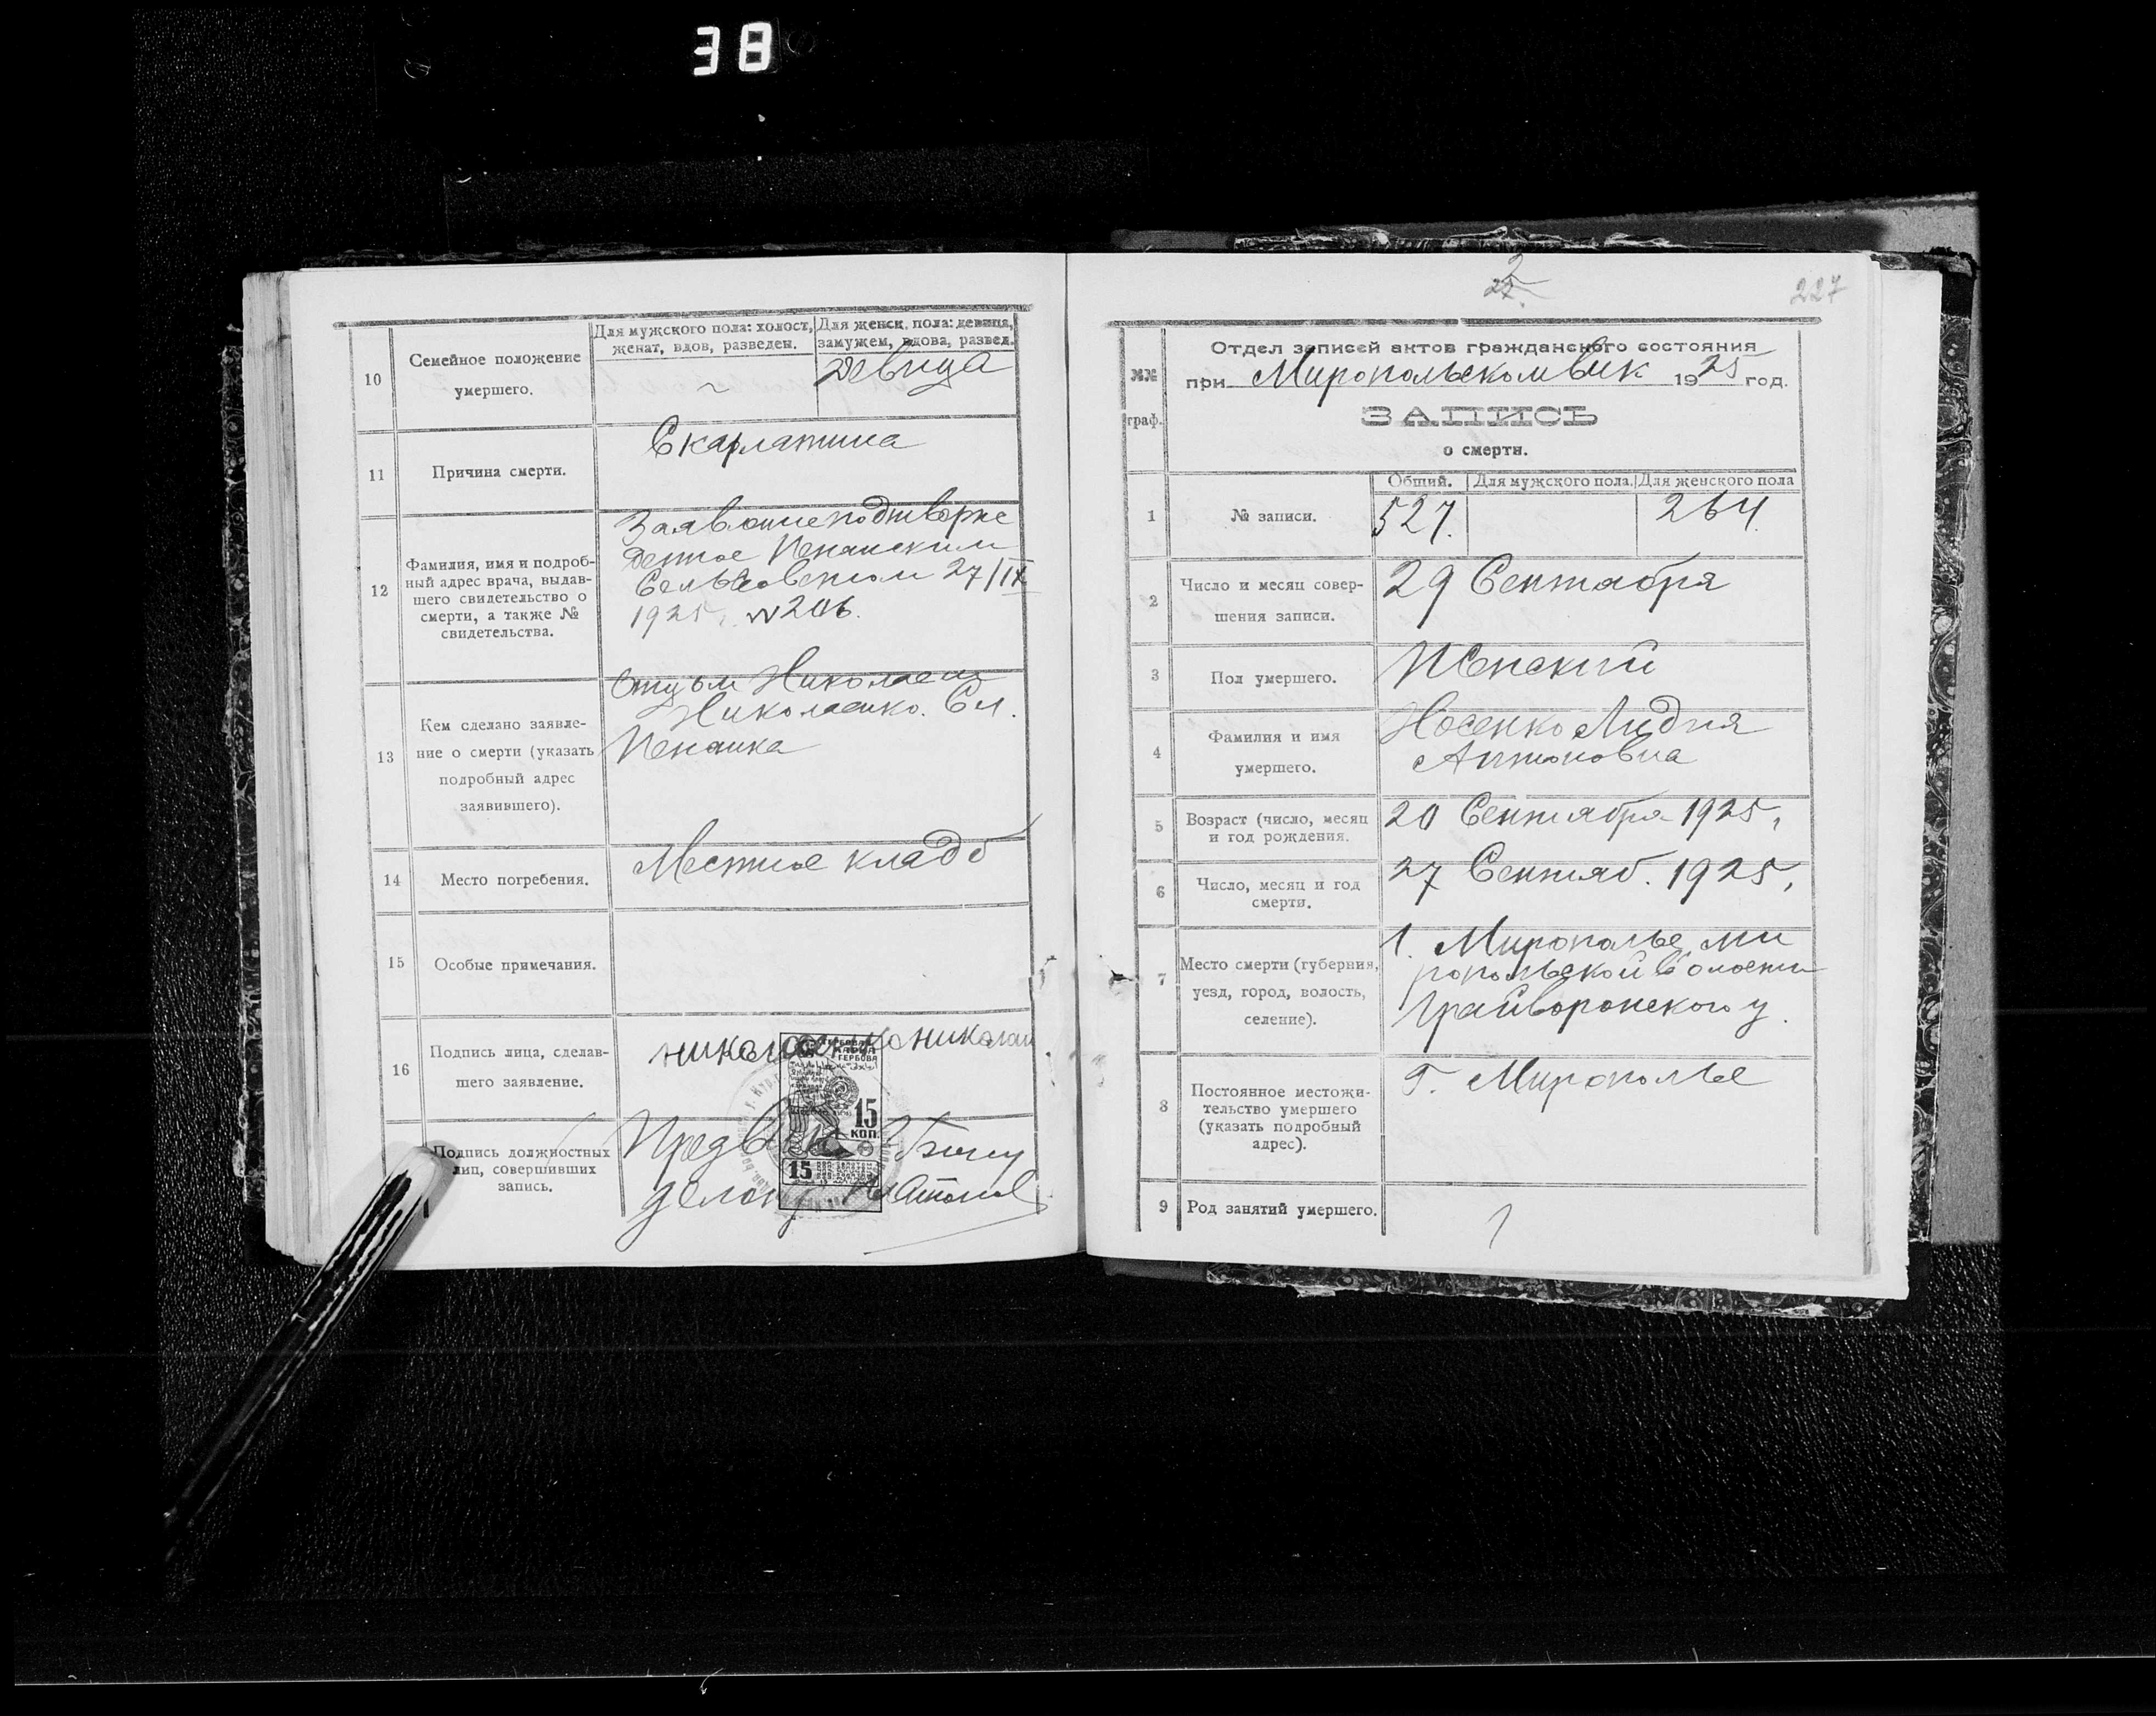 38
10
Семейное положение
умершего.
Для мужского пола: холост,
женат, вдов, разведен.
Для женск. пола: девица,
замужем, вдова, развед.
~
Девица
11
Причина смерти.
Скарлатина
12
Фамилия, имя и подроб-
ный адрес врача, выдав-
шего свидетельство о
смерти, а также №
свидетельства.
Заявление подтверже
денное Пенянским
Сельсоветом 27/IX
1925 г. № 206.
13
Кем сделано заявле-
ние о смерти (указать
подробный адрес
заявившего).
Отцом Николаем
Николаенко. Сл.
Пенянка
14
Место погребения.
Местное кладб
15
Особые примечания.
16
Подпись лица, сделав-
шего заявление.
николаенко николай
15
КОП.
15
Подпись должностных
лиц, совершивших
запись.
Предвика
Делопр.
227
№№
граф.
Отдел записей актов гражданского состояния
при Миропольском вик 1925 год.
ЗАПИСЬ
о смерти.
Общий. Для мужского пола. Для женского пола
1
№ записи.
527.
264.
2
Число и месяц совер-
шения записи.
29 Сентября
3
Пол умершего.
Женский
4
Фамилия и имя
умершего.
Носенко Лидия
Антоновна
5
Возраст (число, месяц
и год рождения.
20 Сентября 1925 г
6
Число, месяц и год
смерти.
27 Сентяб. 1925 г
7
Место смерти (губерния,
уезд, город, волость,
селение).
г. Мирополье ми
ропольской волости
Грайворонского у.
8
Постоянное местожи-
тельство умершего
(указать подробный
адрес).
Г. Мирополье
9
Род занятий умершего.